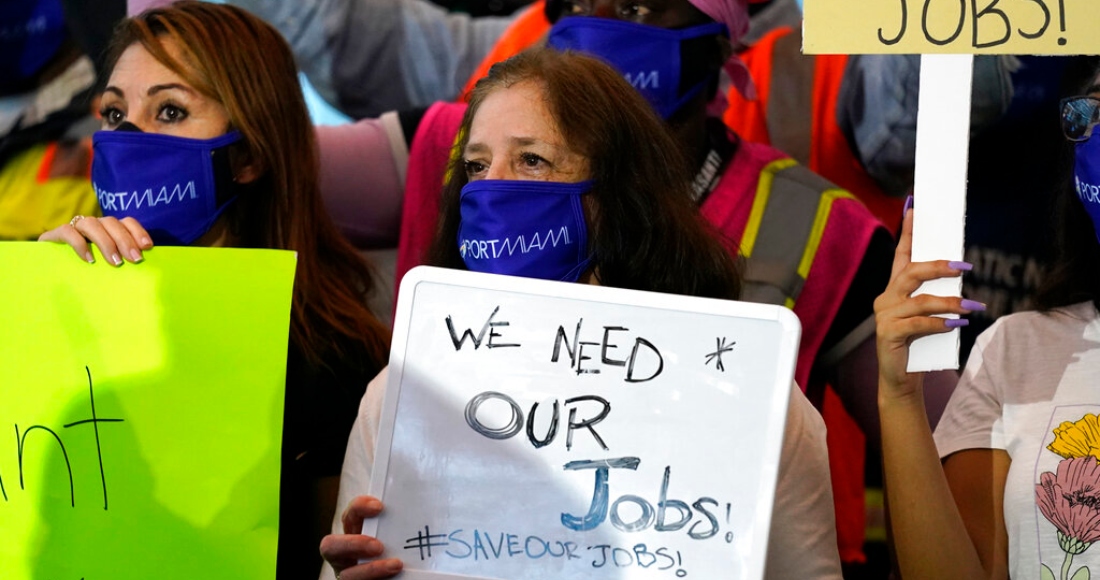 JOBS!
PORTMIAMI
PORTMIAMI
WE NEED *
OUR
Jobs!
#SAVEOUR JOBS!